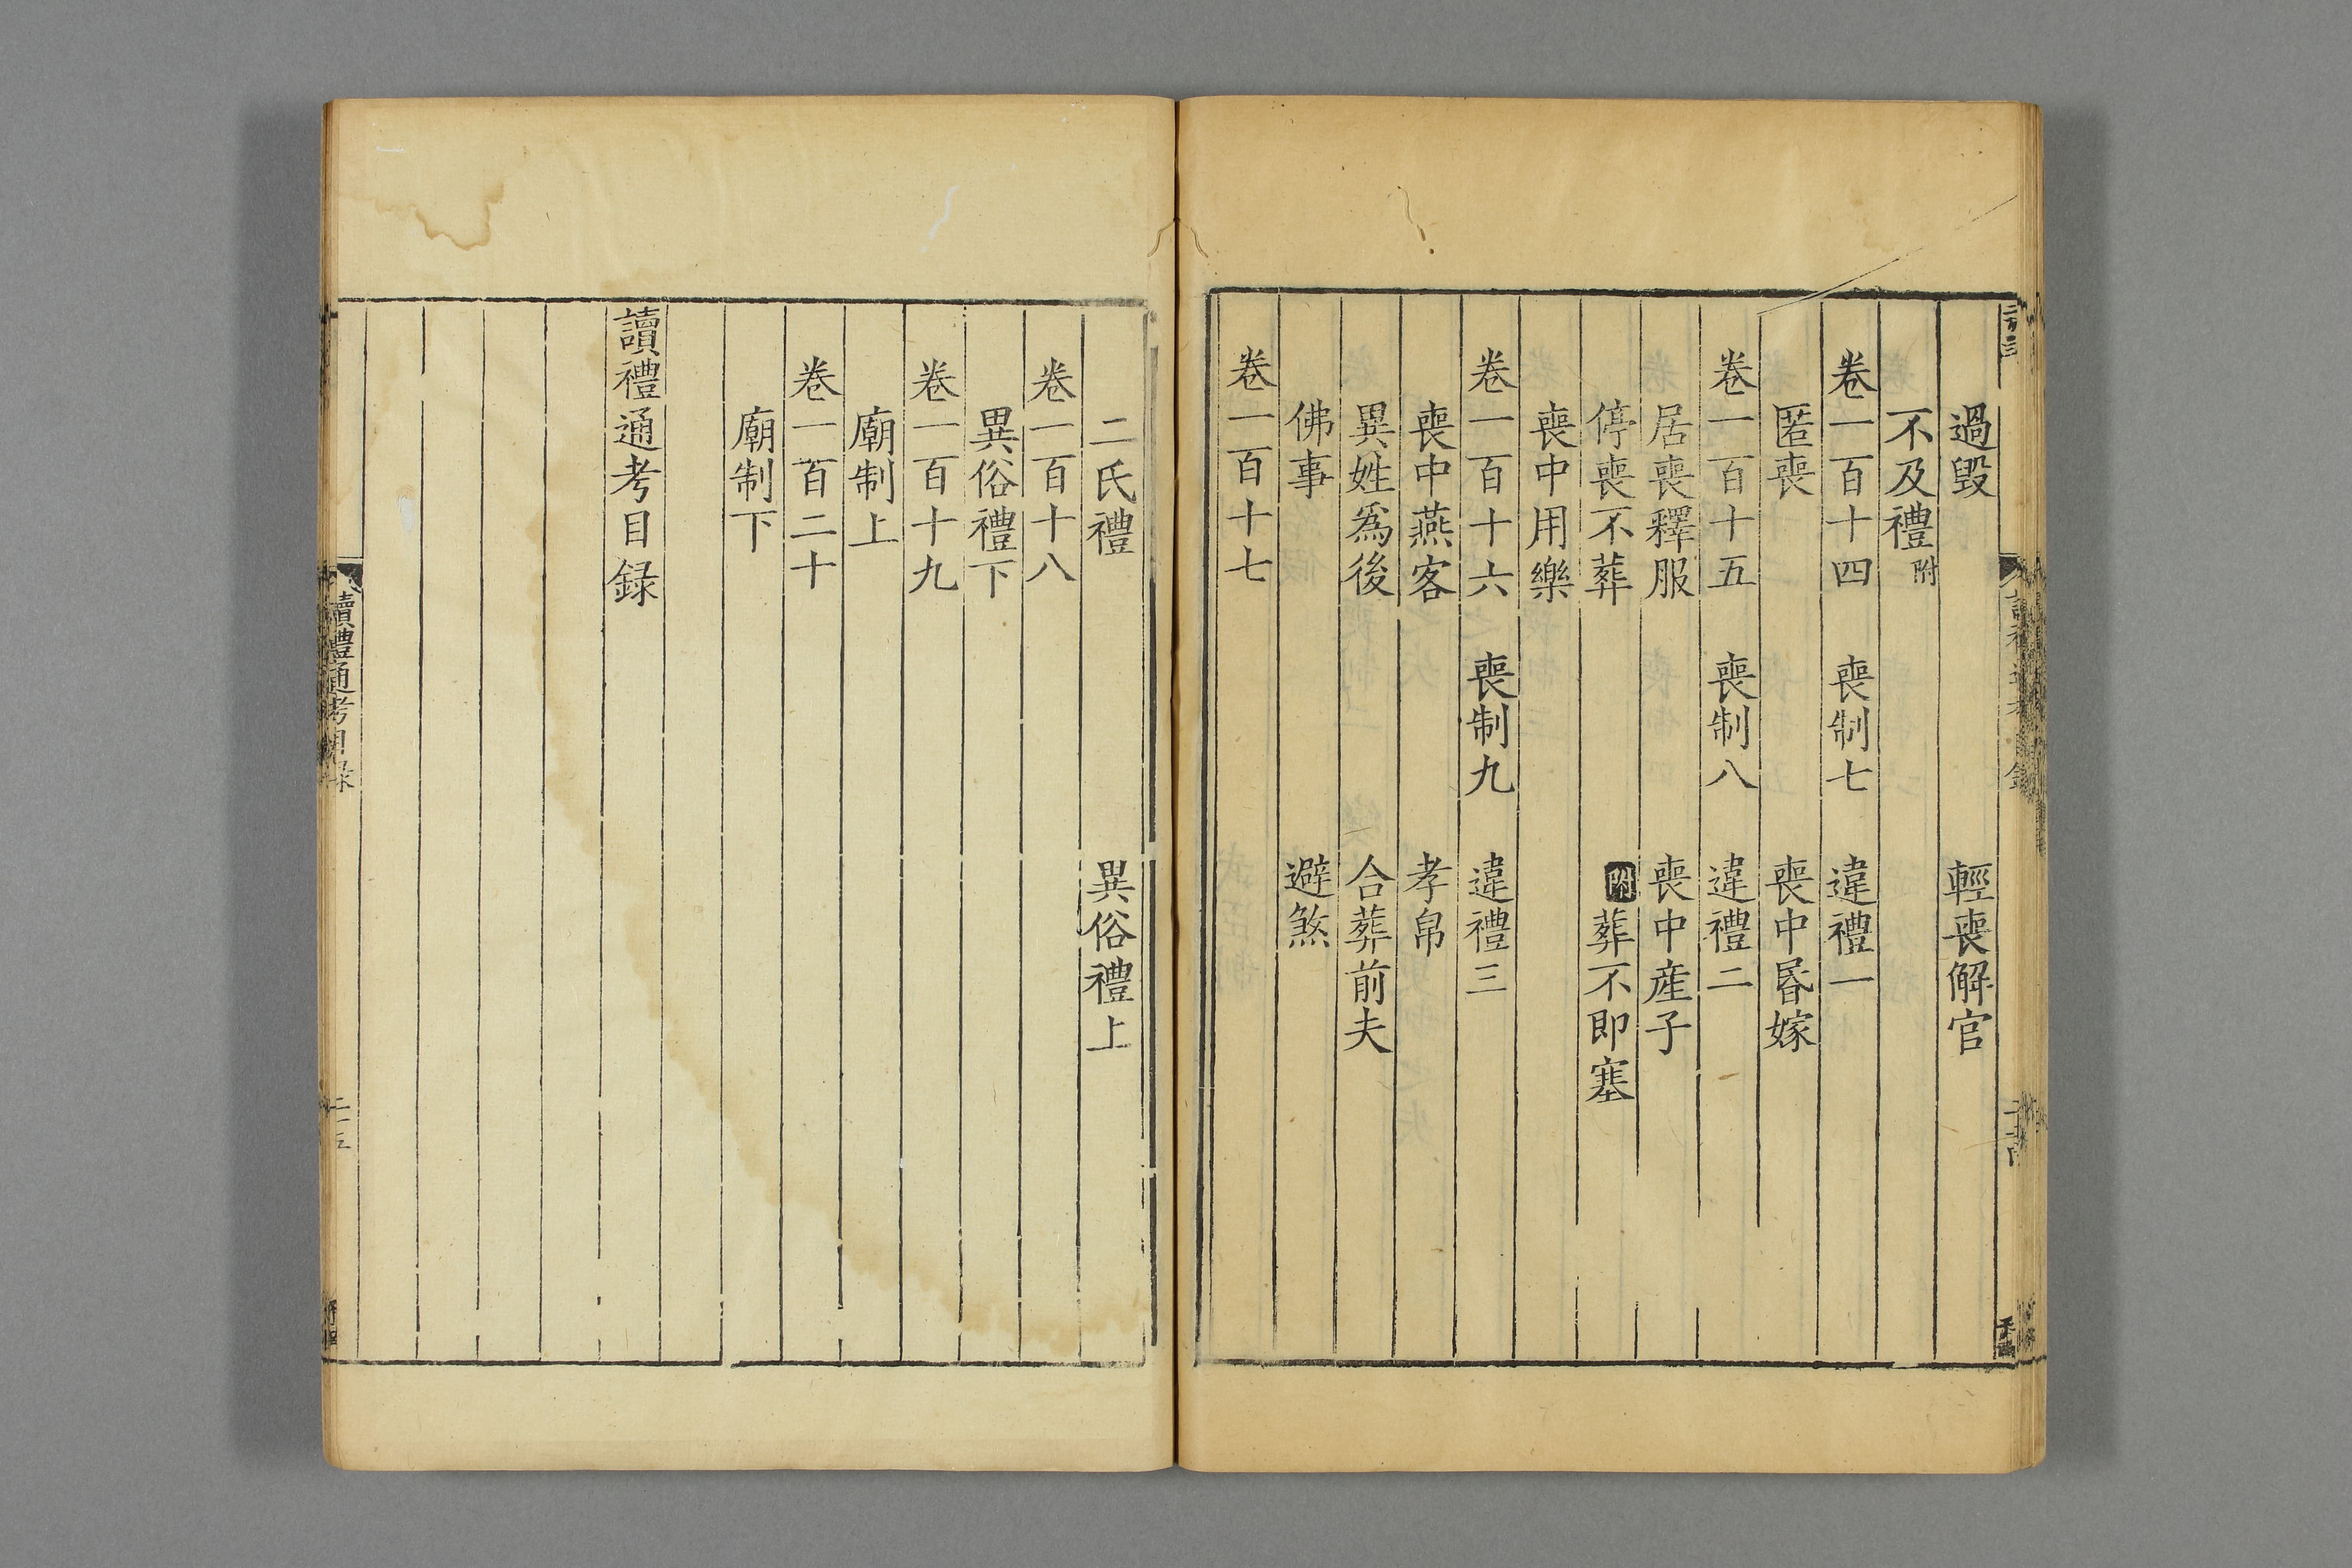 過毀 輕喪解官
不及禮附
卷一百十四 喪制七 違禮一
匿喪 喪中昬嫁
卷一百十五 喪制八 違禮二
居喪釋服 喪中産子
停喪不葬 附葬不即塞
喪中用樂
卷一百十六 喪制九 違禮三
喪中燕客 孝帛
異姓爲後 合葬前夫
佛事 避煞
卷一百十七
二氏禮 異俗禮上
卷一百十八
異俗禮下
卷一百十九
廟制上
卷一百二十
廟制下
讀禮通考目録
讀禮通考目録 二十五